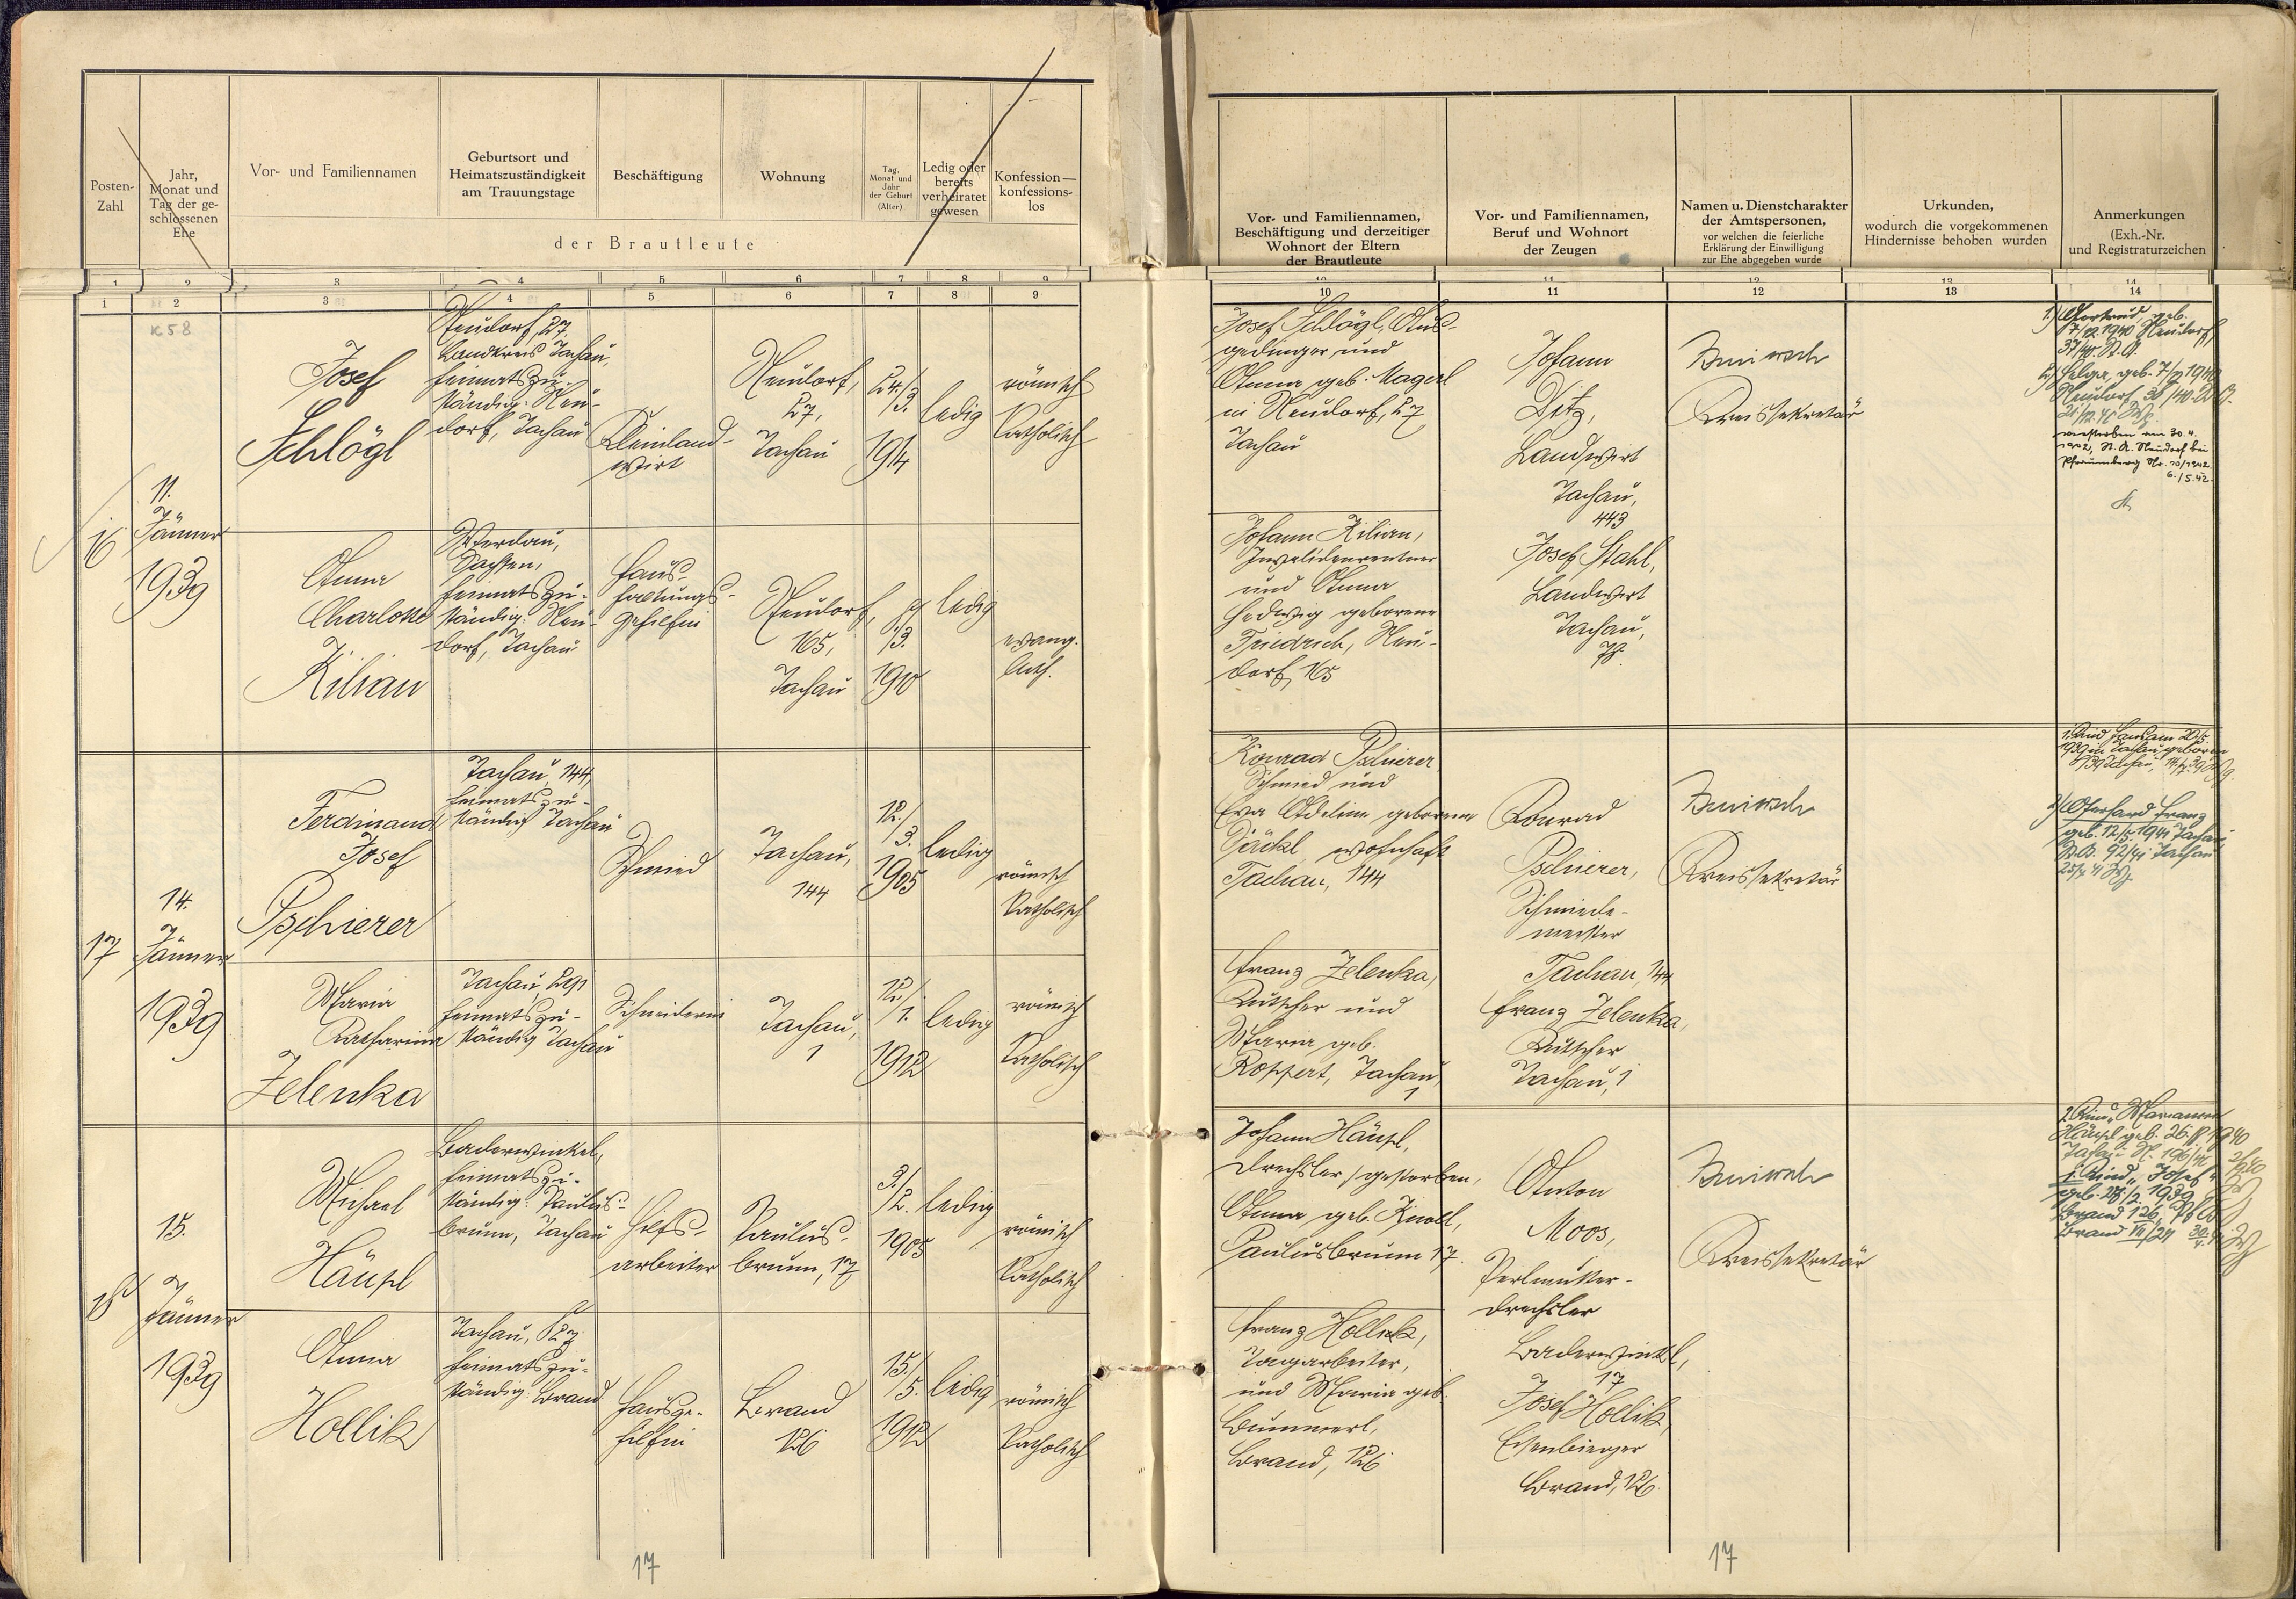 Posten-
Zahl
Jahr,
Monat und
Tag der ge-
schlossenen
Ehe
Vor- und Familiennamen
Geburtsort und
Heimatszuständigkeit
am Trauungstage
Beschäftigung
Wohnung
Tag,
Monat und
Jahr
der Geburt
(Alter)
Ledig oder
bereits
verheiratet
gewesen
Konfession —
konfessions-
los
der Brautleute
1 2 3 4 5 6 7 8 9
1 2 3 4 5 6 7 8 9
K 58
16
11.
Jänner
1939
Josef
Schlögl
Neudorf, 27,
Landkreis Tachau,
heimatszu-
ständig: Neu-
dorf, Tachau
Kleinland-
wirt
Neudorf,
27,
Tachau
24./
3.
1914
ledig
römisch
katholisch
Anna
Charlotte
Kilian
Werdau,
Sachsen,
heimatszu-
ständig: Neu-
dorf, Tachau
Haus-
haltungs-
gehilfin
Neudorf,
165,
Tachau
/3.
1910
ledig
evang.
luth.
17
14.
Jänner
1939
Ferdinand
Josef
Pschierer
Tachau, 144,
heimatszu-
ständig Tachau
Schmied
Tachau,
144
12./
3.
1905
ledig
römisch
katholisch
Maria
Katharina
Zelenka
Tachau,
heimatszu-
ständig Tachau
Schneiderin
Tachau,
1
12./
1.
1912
ledig
römisch
katholisch
18
15.
Jänner
1939
Michael
Häupl
Baderwinkel,
heimatszu-
ständig: Paulus-
brunn, Tachau
Hilfs-
arbeiter
Paulus-
brunn, 17
3./
12.
1905
ledig
römisch
katholisch
Anna
Hollik
Tachau,
heimatszu-
ständig: Brand
Hausge-
hilfin
Brand
126
15./
5.
1912
ledig
römisch
katholisch
17
Vor- und Familiennamen,
Beschäftigung und derzeitiger
Wohnort der Eltern
der Brautleute
Vor- und Familiennamen,
Beruf und Wohnort
der Zeugen
Namen u. Dienstcharakter
der Amtspersonen,
vor welchen die feierliche
Erklärung der Einwilligung
zur Ehe abgegeben wurde
Urkunden,
wodurch die vorgekommenen
Hindernisse behoben wurden
Anmerkungen
(Exh.-Nr.
und Registraturzeichen
10 11 12 13 14
10 11 12 13 14
Josef Schlögl, Aus-
gedinger und
Anna geb. Magerl
in Neudorf, 27
Tachau
Johann Kilian,
Invalidenrentner
und Anna
Hedwig geborene
Friedrich, Neu-
dorf, 165
Johann
Ditz,
Landwirt
Tachau,
443
Josef Stahl,
Landwirt
Tachau,
Kreissekretär
1.) Gertrud, geb.
1940 Neudorf,
37/40. St. A.
2.) Helga, geb. 1940
Neudorf,
verstorben am 30. 4.
1942, St. A. Neudorf bei
Pfraumberg Nr. 10/1942.
6./5.42.
Konrad Pschierer
Schmied und
Eva Adeline geborene
Jäckl wohnhaft
Tachau, 144
Franz Zelenka,
Kutscher und
Maria geb.
Roppert, Tachau,
1
Konrad
Pschierer,
Schmiede-
meister
Tachau, 144
Franz Zelenka,
Kutscher
Tachau, 1
Kreissekretär
1. Kind
1939 in Tachau geboren
2.) Gerhard Franz
geb. 12/5. 1941 Tachau
St. A. 92/41 Tachau
Johann Häupl,
Drechsler/gestorben,
Anna geb. Knoll,
Paulusbrunn 17.
Franz Hollik,
Tagarbeiter,
und Maria geb.
Bummerl,
Brand, 126
Anton
Moos,
Perlmutter-
drechsler
Baderwinkl,
17
Josef Hollik,
Eisenbieger
Brand, 126
Kreissekretär
2. Kind: Marianne
Häupl geb. 26. 1940
Tachau Nr. 196/40
1. Kind „Josef"
geb. 28./2. 1939
Brand 126,
Brand
17